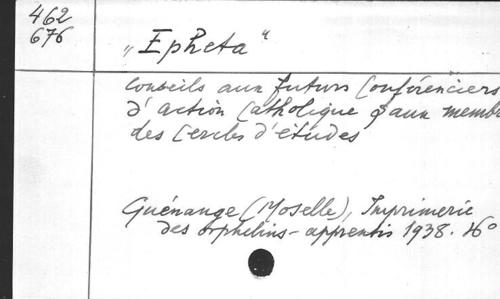 462
676
„Epheta"
Conseils aux futurs Conférenciers
d'action Catholique & aux membr
des Cercles d'études
Guénange (Moselle), Imprimerie
des orphelins-apprentis 1938. 16°